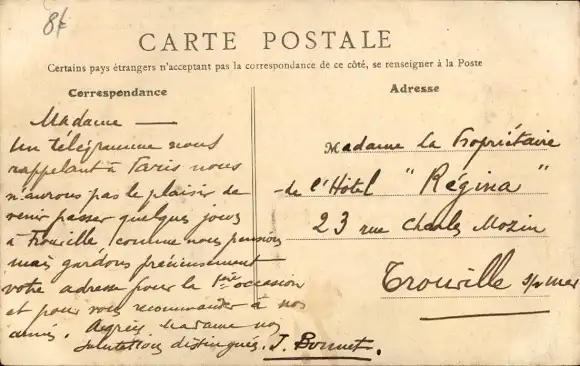 8f
CARTE POSTALE
Certains pays étrangers n'acceptant pas la correspondance de ce côté, se renseigner à la Poste
Correspondance
Madame —
Un télégramme nous
rappelant à Paris nous
n'aurons pas le plaisir de
venir passer quelques jours
à Trouville, comme nous pensions
mais gardons précieusement
votre adresse pour la 1ère occasion
et pour vous recommander à nos
amis. Agréez, Madame nos
salutations distingués. J. Bonnet.
Adresse
Madame La Propriétaire
de l'Hôtel "Régina"
23 rue Charles Mozin
Trouville s/mer